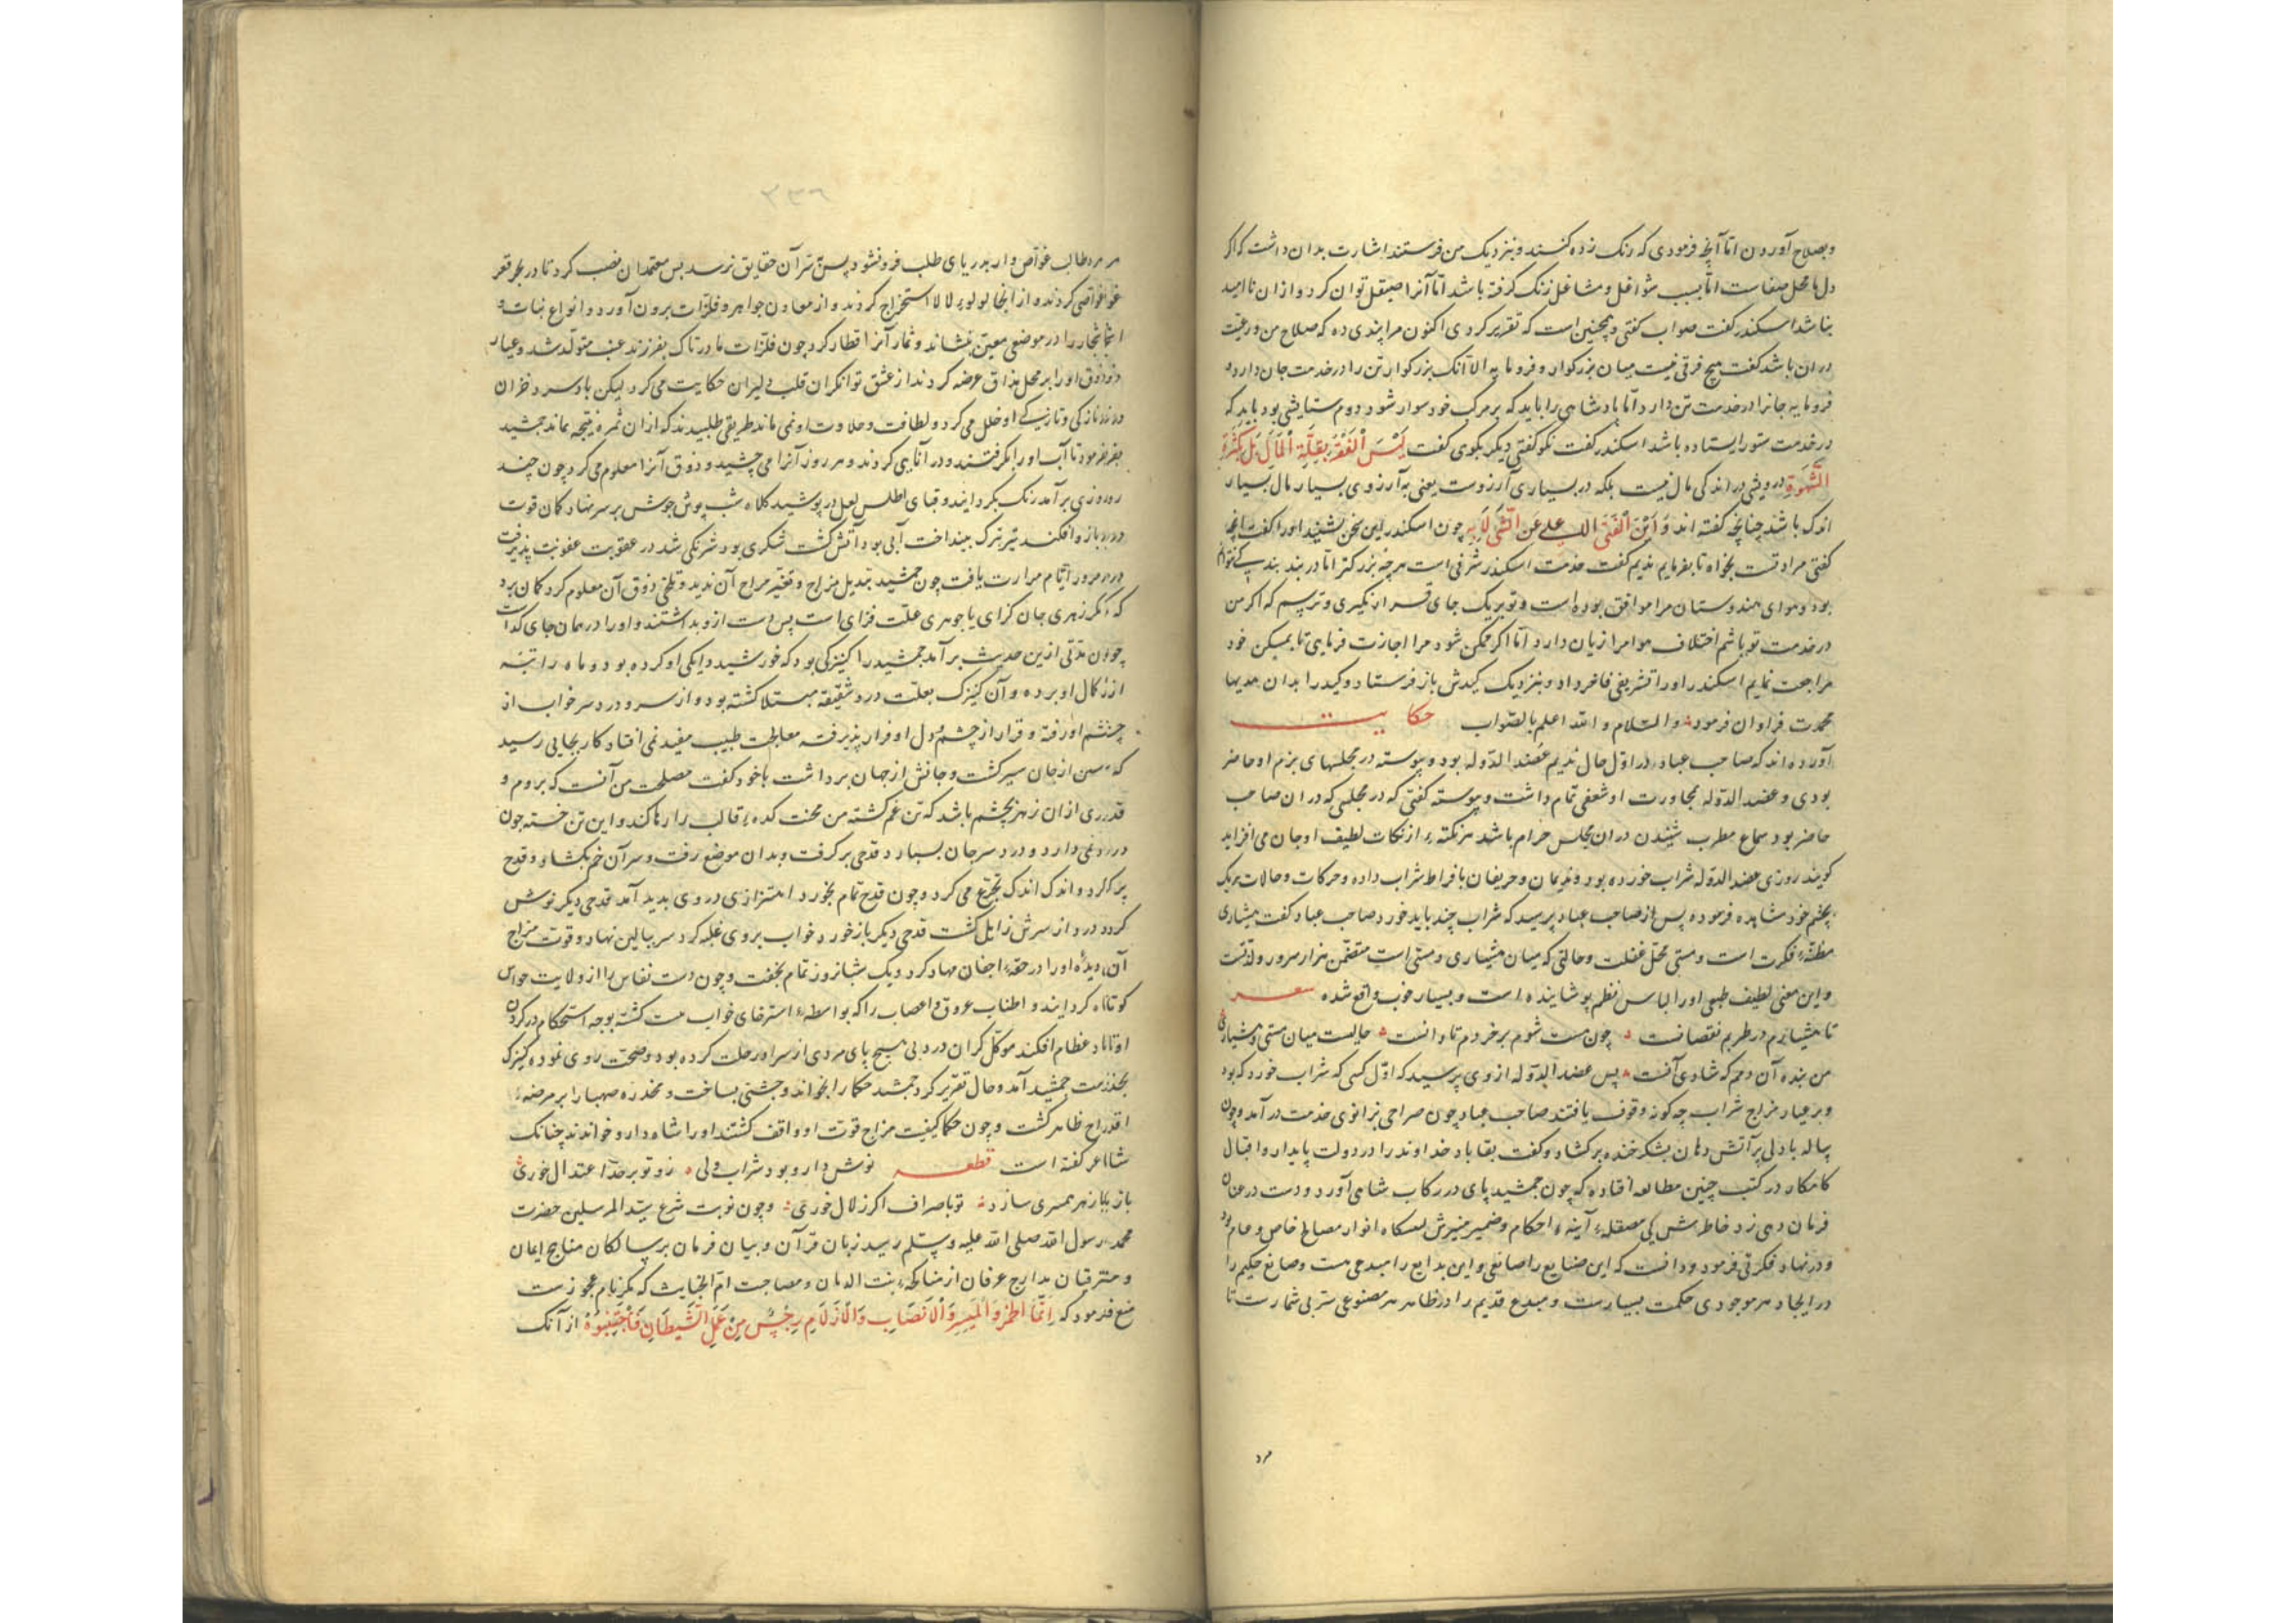 وبصلاح آوردن اما آنچه فرمودی که زنک زده کنند و بنزدیک من فرستند اشارت بدان داشت که اکر
دل ما محل صفاست اما بسبب شواغل و مشاغل زنک کرفته باشد اما آنرا صیقل توان کرد و ازان ناامید
نباشد اسکندر کفت صواب کفتی و همچنین است که تقریر کردی اکنون مرا پندی ده که صلاح من و رعیت
دران باشد کفت هیچ فرقی نیست میان بزرکوار و فرومایه الا آنک بزرکوار تن را در خدمت جان دارد و
فرومایه جانرا در خدمت تن دارد اما پادشاهی را باید که بر مرک خود سوار شود دوم ستایشی بود باید که
در خدمت ستور ایستاده باشد اسکندر کفت نکو کفتی دیکر بکوی کفت لَیْسَ الْفَقْرُ بِقِلَّةِ الْمَالِ بَلْ کَثْرَةِ
الشَّهْوَةِ درویشی در اندکی مال نیست بلکه در بسیاری آرزوست یعنی به آرزوی بسیار مال بسیار
اندک باشد چنانچه کفته اند چون اسکندر این سخن بشنید اورا کفت آنچه
کفتی مراد تست بخواه تا بفرمایم ندیم کفت خدمت اسکندر شرفی است هرچه بزرکتر اما در بند بند پی نتوان
بود و هوای هندوستان مرا موافق بوده است و تو بریک جای قرار نکیری و ترسم که اکر من
در خدمت تو باشم اختلاف هوا مرا زیان دارد اما اکر ممکن شود مرا اجازت فرمایی تا بمسکن خود
مراجعت نمایم اسکندر اورا تشریفی فاخر داد و بنزدیک کیدش باز فرستاد و کید را بدان هدیها
محمدت فراوان فرمود والسلام و الله اعلم بالصواب حکایت
آورده اند که صاحب عباد در اول حال ندیم عضد الدوله بود و پیوسته در مجلسهای بزم او حاضر
بودی و عضد الدوله بمجاورت او شعفی تمام داشت و پیوسته کفتی که در مجلسی که دران صاحب
حاضر بود سماع مطرب شنیدن دران مجلس حرام باشد هر نکته از نکات لطیف او جان می افزاید
کویند روزی عضد الدوله شراب خورده بود و ندیمان و حریفان بافراط شراب داده و حرکات و حالات هریک
بچشم خود مشاهده فرموده پس از صاحب عباد پرسید که شراب چند باید خورد صاحب عباد کفت هشیاری
مظنه فکرت است و مستی محل غفلت و حالتی که میان هشیاری و مستی است متضمن هزار سرور و لذتست
و این معنی لطیف طبعی اورا لباس نظم پوشانیده است و بسیار خوب واقع شده شعر
تا هشیارم در طربم نقصانست چون مست شوم بر خردم تاوانست حالیست میان مستی و هشیاری
من بنده آن دم که شادی آنست پس عضد الدوله از وی پرسید که اول کسی که شراب خورد که بود
و بر عیار مزاج شراب چه کونه وقوف یافتند صاحب عباد چون صراحی بزانوی خدمت در آمد و چون
پیاله با دلی پر آتش دهان بشکر خنده برکشاد و کفت بقا باد خداوند را در دولت پایدار و اقبال
کامکار در کتب چنین مطالعه افتاده که چون جمشید پای در رکاب شاهی آورد و دست در عنان
فرمان دهی زد خاطرش کی مصقله آینه احکام و ضمیر منیرش انوار مصالح خاص و عام بود
و در نهاد فکرتی فرمود و دانست که این صنایع را صانعی و این بدایع را مبدعی هست و صانع حکیم را
در ایجاد هر موجودی حکمت بسیارست و مبدع قدیم را در ظاهر هر مصنوعی سری بی شمارست تا
مرد
۳۳۶
مرد طالب غواص وار بدریای طلب فرو نشود بستر آن حقایق نرسد پس معتمدان نصب کرد تا در بحر قعر
غواصی کردند و از آنجا لولوء لالا استخراج کردند و از معادن جواهر و فلزات برون آورد و انواع نبات و
اشجار را در موضعی معین بنشاند و ثمار آنرا قطار کرد چون فلزات مادر تاک بفرزند عنب متولد شد و عیار
ذوق اورا بر محل مذاق عرضه کردند از عشق توانکران قلب دلیران حکایت می کرد لیکن باد سرد خزان
در نازکی و تازیکی او خلل می کرد و لطافت و حلاوت او نمی ماند طریقی طلبیدند که ازان ثمره نتیجه بماند جمشید
بفرمود تا آب اورا بکرفتند و در انایی کردند و هر روز آنرا می چشید و ذوق آنرا معلوم می کرد چون چند
روزی برآمد رنک بکردانید و قبای اطلس لعل در پوشید کلاه شب پوش جوش بر سر نهاد کمان قوت
در بازو افکند تیر ترک بینداخت آبی بود آتش کشت شکری بود شرنکی شد در عقوبت عفونت پذیرفت
در مرور ایام مرارت یافت چون جمشید تبدیل مزاج و تغیر مزاج آن ندید و تلخی ذوق آن معلوم کرد کمان برد
که مکر زهری جان کزای یا جوهری علت فزای است پس دست ازو بداشتند و اورا در همان جای کذاشت
چون مدتی ازین حدیث برآمد جمشید را کنیزکی بود که خورشید دایکی او کرده بود و ماه راتبه
از کمال او برده و آن کنیزک بعلت درد شقیقه مبتلا کشته بود و از سر و درد سر خواب از
چشم او رفته و قرار از چشم و دل او فرار پذیرفته معالجت طبیب مفید نمی افتاد کار بجایی رسید
که مسکین از جان سیر کشت و جانش از جهان برداشت با خود کفت مصلحت من آنست که بروم و
قدری ازان زهر بچشم باشد که تن غم کشته من محنت کده قالب را رها کند و این تن خسته چون
درد نمی دارد و درد سر جان بسپارد قدحی برکرفت و بدان موضع رفت و سر آن خم بکشاد و قدح
پر کرد و اندک اندک تجرع می کرد و چون قدح تمام بخورد اهتزازی در وی بدید آمد قدحی دیکر نوش
کرد درد از سرش زایل کشت قدحی دیکر باز خورد خواب بر وی غلبه کرد سر ببالین نهاد و قوت مزاج
آن دیده اورا در حقه اجفان مهاد کرد و یک شبانروز تمام بخفت و چون دست نفاس را از ولایت حواس
کوتاه کردانید و اطناب عروق و اعصاب را که بواسطه استرخای خواب سست کشته بوجه استحکام در کردن
اوتاد عظام افکند موکل کران درد بی هیچ پای مردی از سر او رحلت کرده بود و صحت روی نموده کنیزک
بخدمت جمشید آمد و حال تقریر کرد جمشید حکما را بخواند و جشنی بساخت و مخدره صهبا را بر مرضه
اقداح ظاهر کشت و چون حکما کیفیت مزاج قوت او واقف کشتند اورا شاه دارو خواندند چنانک
شاعر کفته است قطعه نوش دارو بود شراب ولی زو تو بر حد اعتدال خوری
باز با زهر همسری سازد تو باصراف اکر زلال خوری و چون نوبت شرع سید المرسلین حضرت
محمد رسول الله صلی الله علیه وسلم رسید زبان قرآن و بیان فرمان بر سالکان مناهج ایمان
و مترقیان مدارج عرفان از مناکحه بنت الدنان و مصاحبت ام الخبایث که عجوزست
منع فرمود که اِنَّمَا الْخَمْرُ وَالْمَیْسِرُ وَالْاَنْصَابُ وَالْاَزْلَامُ رِجْسٌ مِنْ عَمَلِ الشَّیْطَانِ فَاجْتَنِبُوهُ از آنک